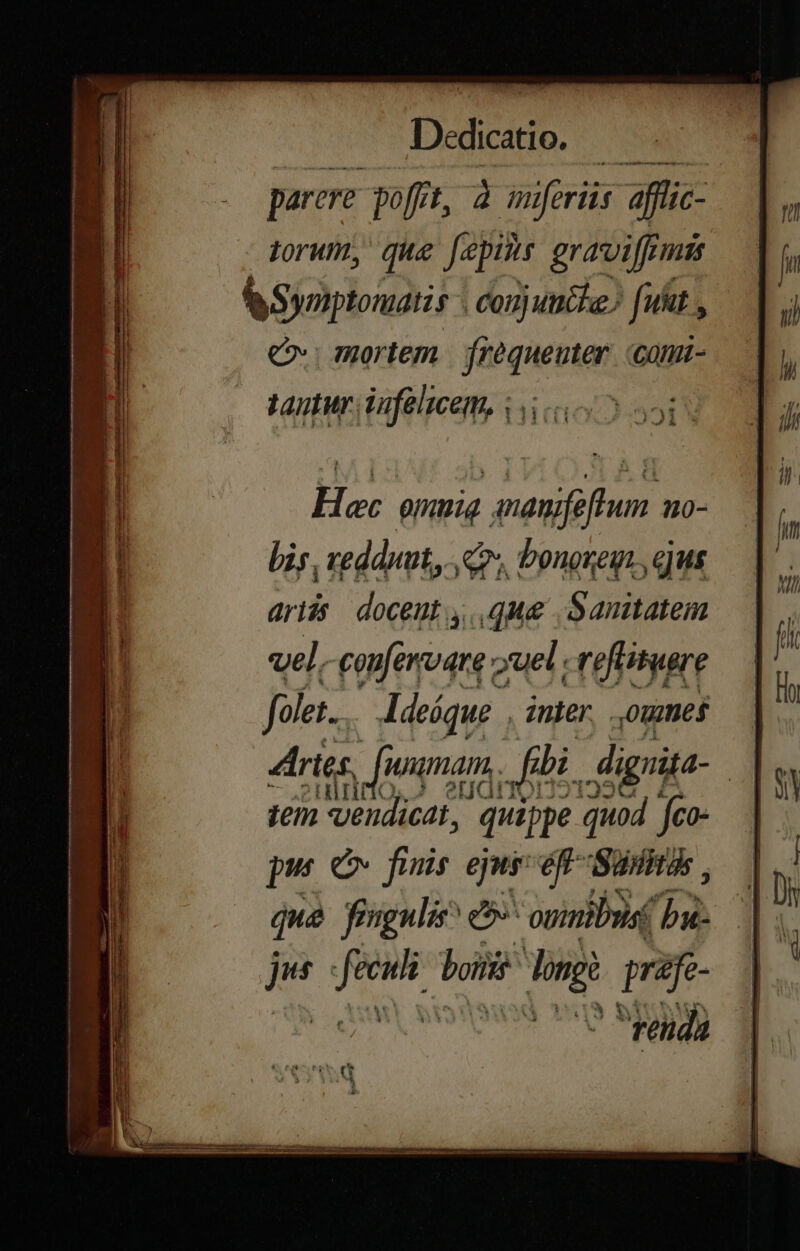 Dedicatio.
parere poſſit, à miſeriis afflic-
torum, quæ ſæpiùs graviſſimis
Symptomatis conjunctæ ſunt,
& mortem frequenter comi-
tantur infelicem.
Hæc omnia manifeſtum no-
bis reddunt, & honorem ejus
artis docent, quæ Sanitatem
vel conſervare vel reſtituere
ſolet. Adeóque inter omnes
Artes, ſummam ſibi dignita-
tem vendicat, quippe quod ſco-
pus & finis ejus eſt Sanitas,
quæ ſingulis & omnibus hu-
jus ſeculi bonis longè præfe-
renda